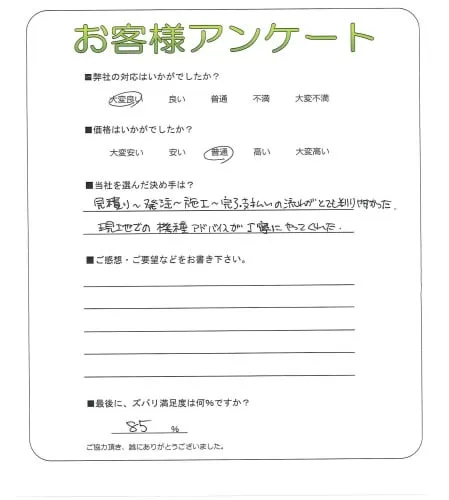 お客様アンケート
■弊社の対応はいかがでしたか？
大変良い 良い 普通 不満 大変不満
■価格はいかがでしたか？
大変安い 安い 普通 高い 大変高い
■当社を選んだ決め手は？
見積り〜発注〜施工〜完了・支払いの流れがとても判りやすかった.
現地での機種アドバイスが丁寧にやってくれた.
■ご感想・ご要望などをお書き下さい。
■最後に、ズバリ満足度は何%ですか？
85 %
ご協力頂き、誠にありがとうございました。